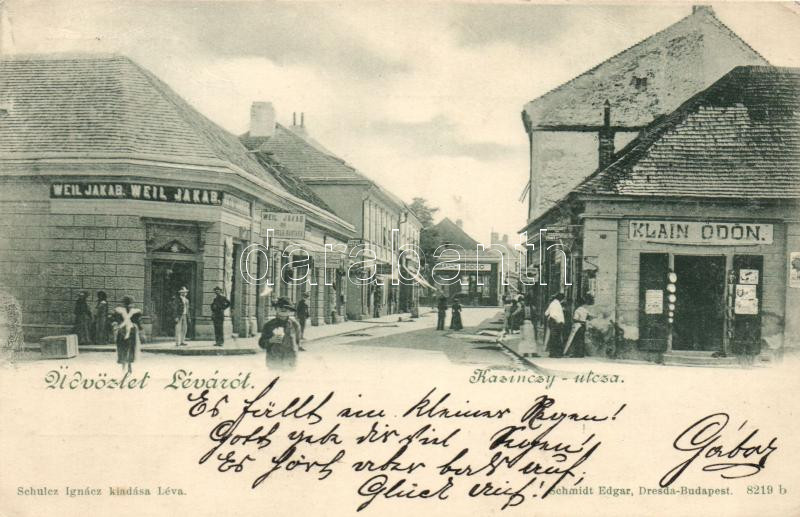 WEIL JAKAB. WEIL JAKAB.
WEIL JAKAB
KLAIN ÖDÖN.
darabanth
Üdvözlet Léváról.
Kazinczy-utcza.
Es fällt ein kleiner Regen!
Gott gebe dir viel Segen!
Es hört aber bald auf,
Glück auf!!
Gábor
Schulcz Ignácz kiadása Léva.
Schmidt Edgar, Dresda-Budapest. 8219 b